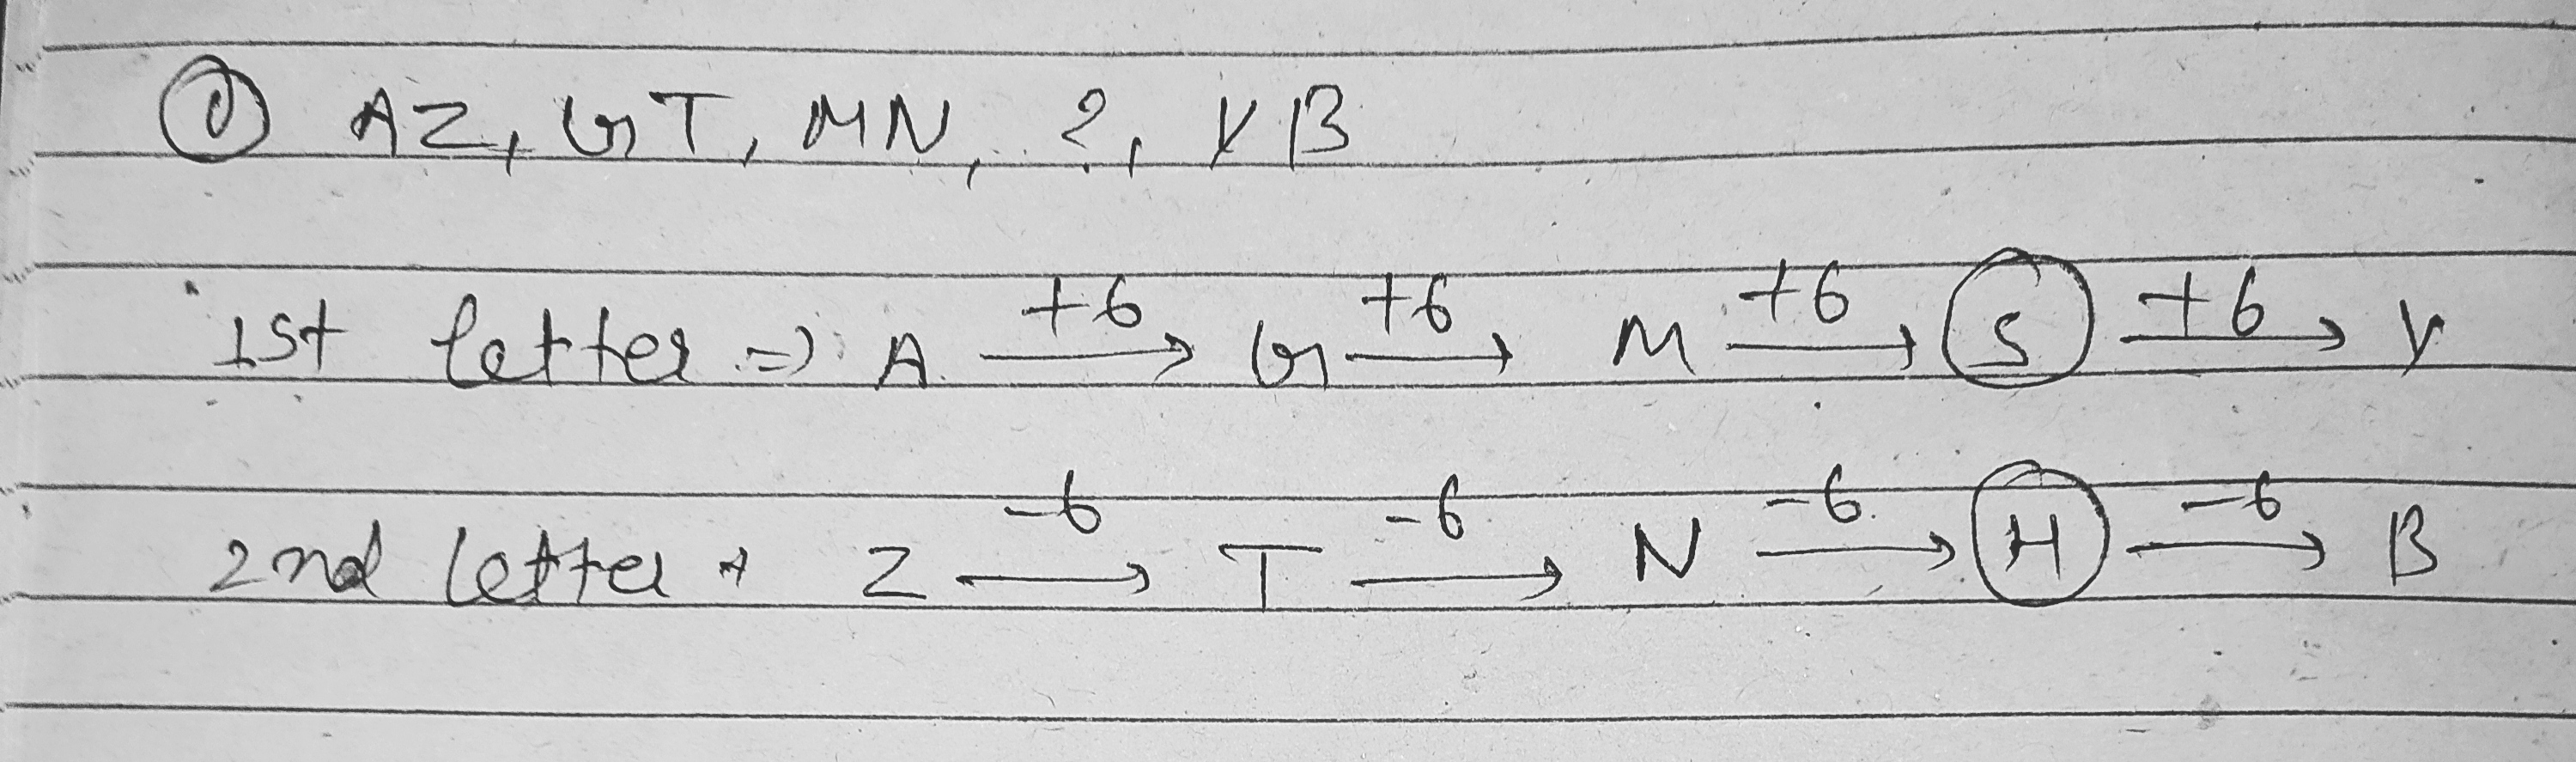 ① AZ, GT, MN, ?, YB
1st letter => A +6→ G +6→ M +6→ S +6→ Y
2nd letter → Z -6→ T -6→ N -6→ H -6→ B